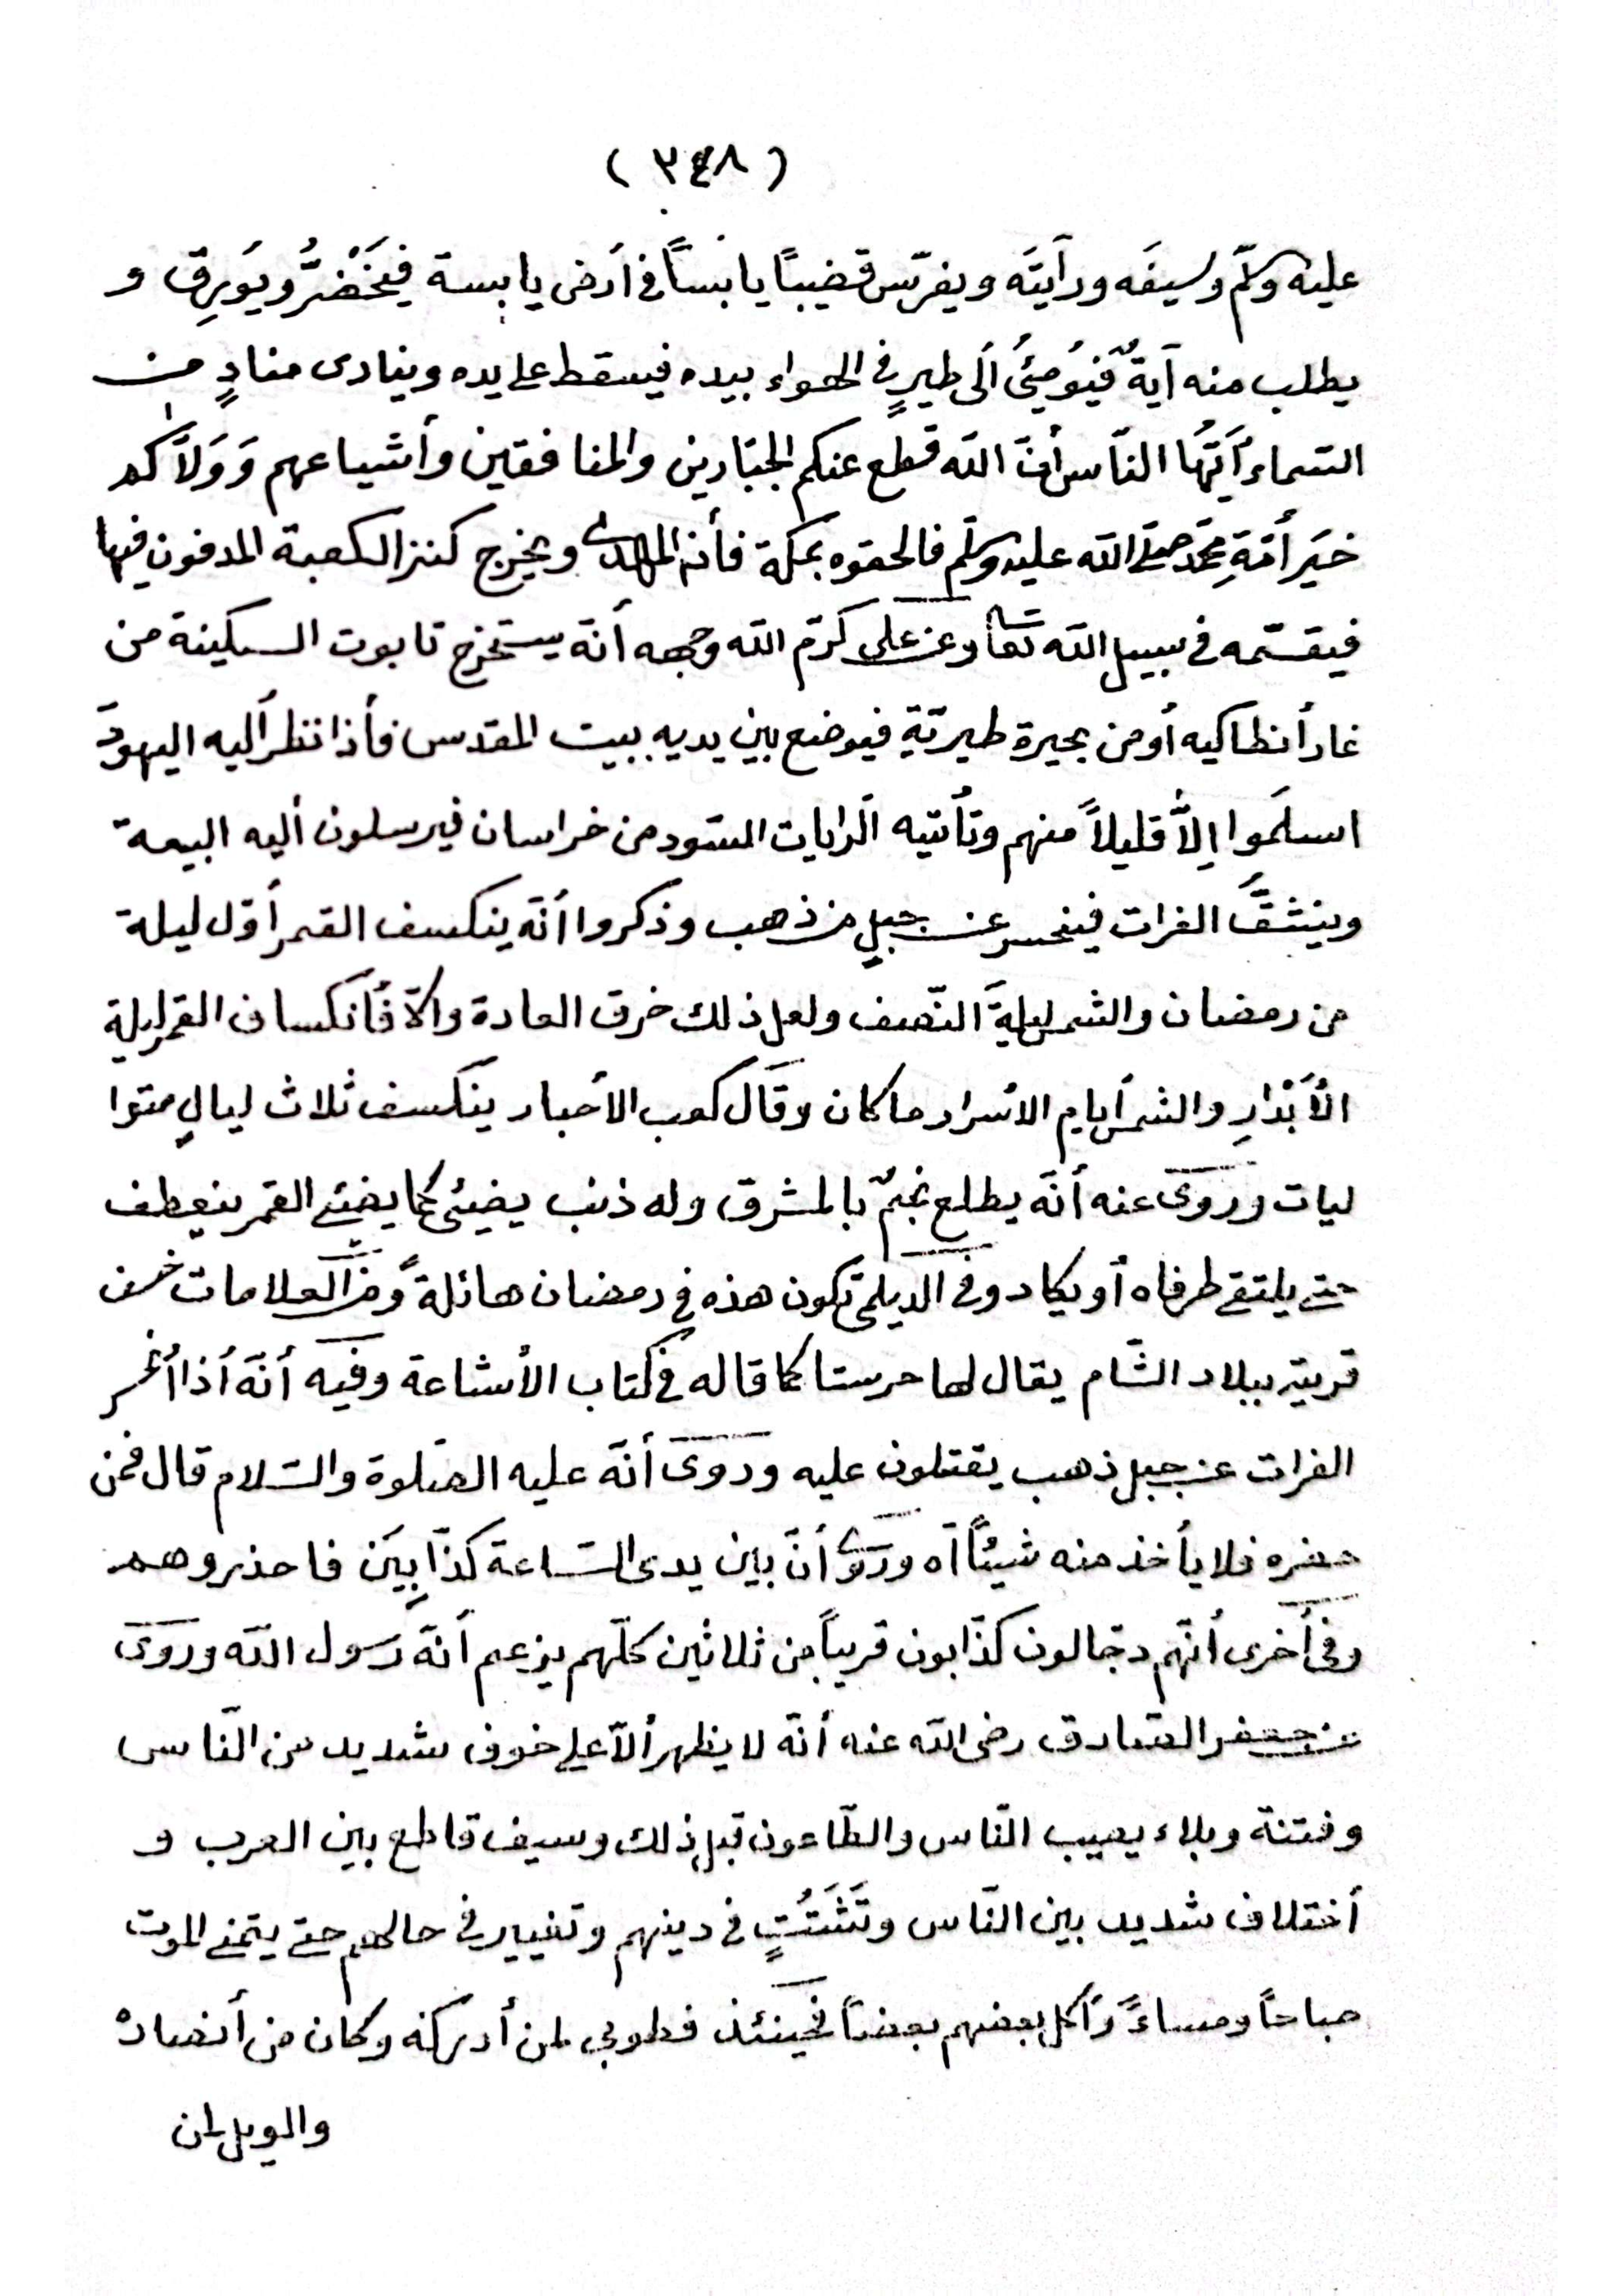 ( ٣٤٨ )
عليه وسلّم وسيفَه ورآيتَه ويغرّس قضيبًا يابسًا في أرض يابسة فيَخْضَرُّ ويوَرِق و
يطلب منه آيةٌ فيُومِئُ ألى طيرٍ في الهواء بيده فيسقط على يده وينادى منادٍ من
السّماء أيّهَا النّاس أنّ الله قطع عنكم الجبّارين والمنافقين وأشياعهم وَوَلاّكم
خيَر أمّةِ محمّد صلى الله عليه وسلّم فالحقوه بمكة فأنه المهدى ويخرج كنز الكعبة المدفون فيها
فيقسّمه في سبيل الله تعا وعن على كرّم الله وجهه أنّه يستخرج تابوت السكينة من
غار أنطاكيه أو من بحيرة طبريّةِ فيوضع بين يديه ببيت المقدس فأذا نظر أليه اليهودَ
اسلَموا إلاَّ قليلاً منهم وتأتيه الرايات السّود من خراسان فيرسلون أليه البيعة
وينشقَّ الفرات فينحسر عن جبلٍ من ذهب وذكروا أنّه ينكسف القمر أوّل ليلة
من رمضان والشمس ليلةَ النّصف ولعل ذلك خرق العادة والّا فأنكساف القمر ليلة
الأَبْدَارِ والشمس أيام الاسرار ما كان وقال كعب الأحبار ينكسف ثلاث ليالٍ متوا
ليات وروىَ عنه أنّه يطلع نجمٌ بالمشرق وله ذنب يضيئ كما يضئ القمر ينعطف
حتى يلتقى طرفاه أو يكاد وفى الديلمى تكون هذه في رمضان هائلةً ومن العلامات خسف
قرية ببلاد الشّام يقال لها حرستا كما قاله في كتاب الأشاعة وفيه أنّه أذا أنحسر
الفرات عن جبل ذهب يقتتلون عليه وروىَ أنّه عليه الصّلوة والسّلام قال فمن
حضره فلا يأخذ منه شيئًا اه وروى أنّ بين يدى السّاعة كذّابِيَن فاحذروهم
وفى أخرى أنّهم دجّالون كذّابون قريبًا من ثلاثين كلّهم يزعم أنّه رَسول الله وروىَ
عن جعفر الصّادق رضى الله عنه أنّه لا يظهر ألّا على خوف شديد من النّاس
وفتنة وبلاء يصيب النّاس والطّاعون قبل ذلك وسيف قاطع بين العرب و
أختلاف شديد بين النّاس وتَشَتُتٍ في دينهم وتغيير في حالهم حتى يتمنى الموت
صباحًا ومساءً وأكل بعضهم بعضًا فحينئذ فطوبى لمن أدركه وكان من أنصاره
والويل لمن